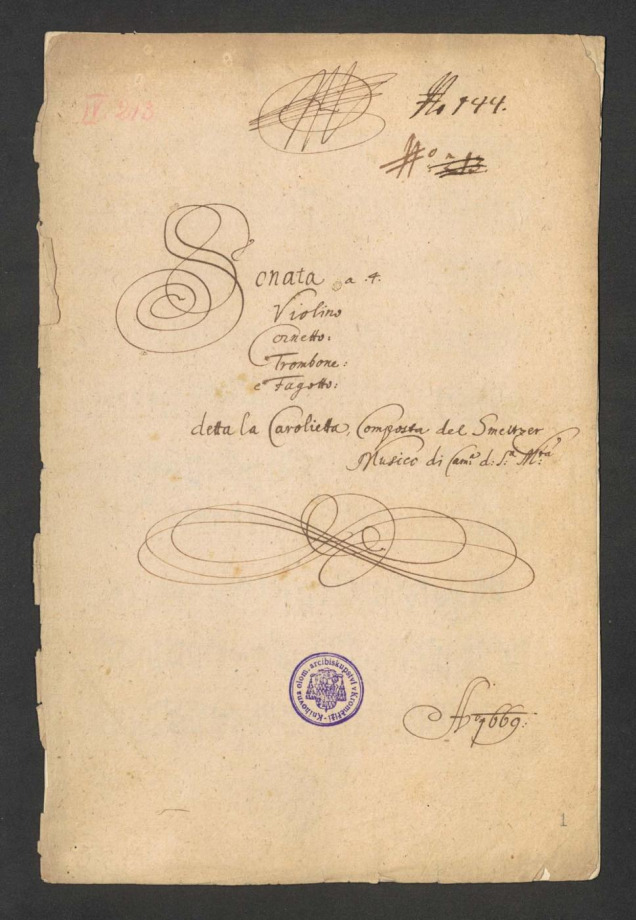 IV 213
No 144.
No 213.
Sonata a .4.
Violino
Cornetto:
Trombone:
e Fagotto:
detta la Carolietta, Composta del Smeltzer
Musico di Cam.ª d: S.ª M.tà
Knihovna olom. arcibiskupství v Kroměříži -
Aº 1669.
1